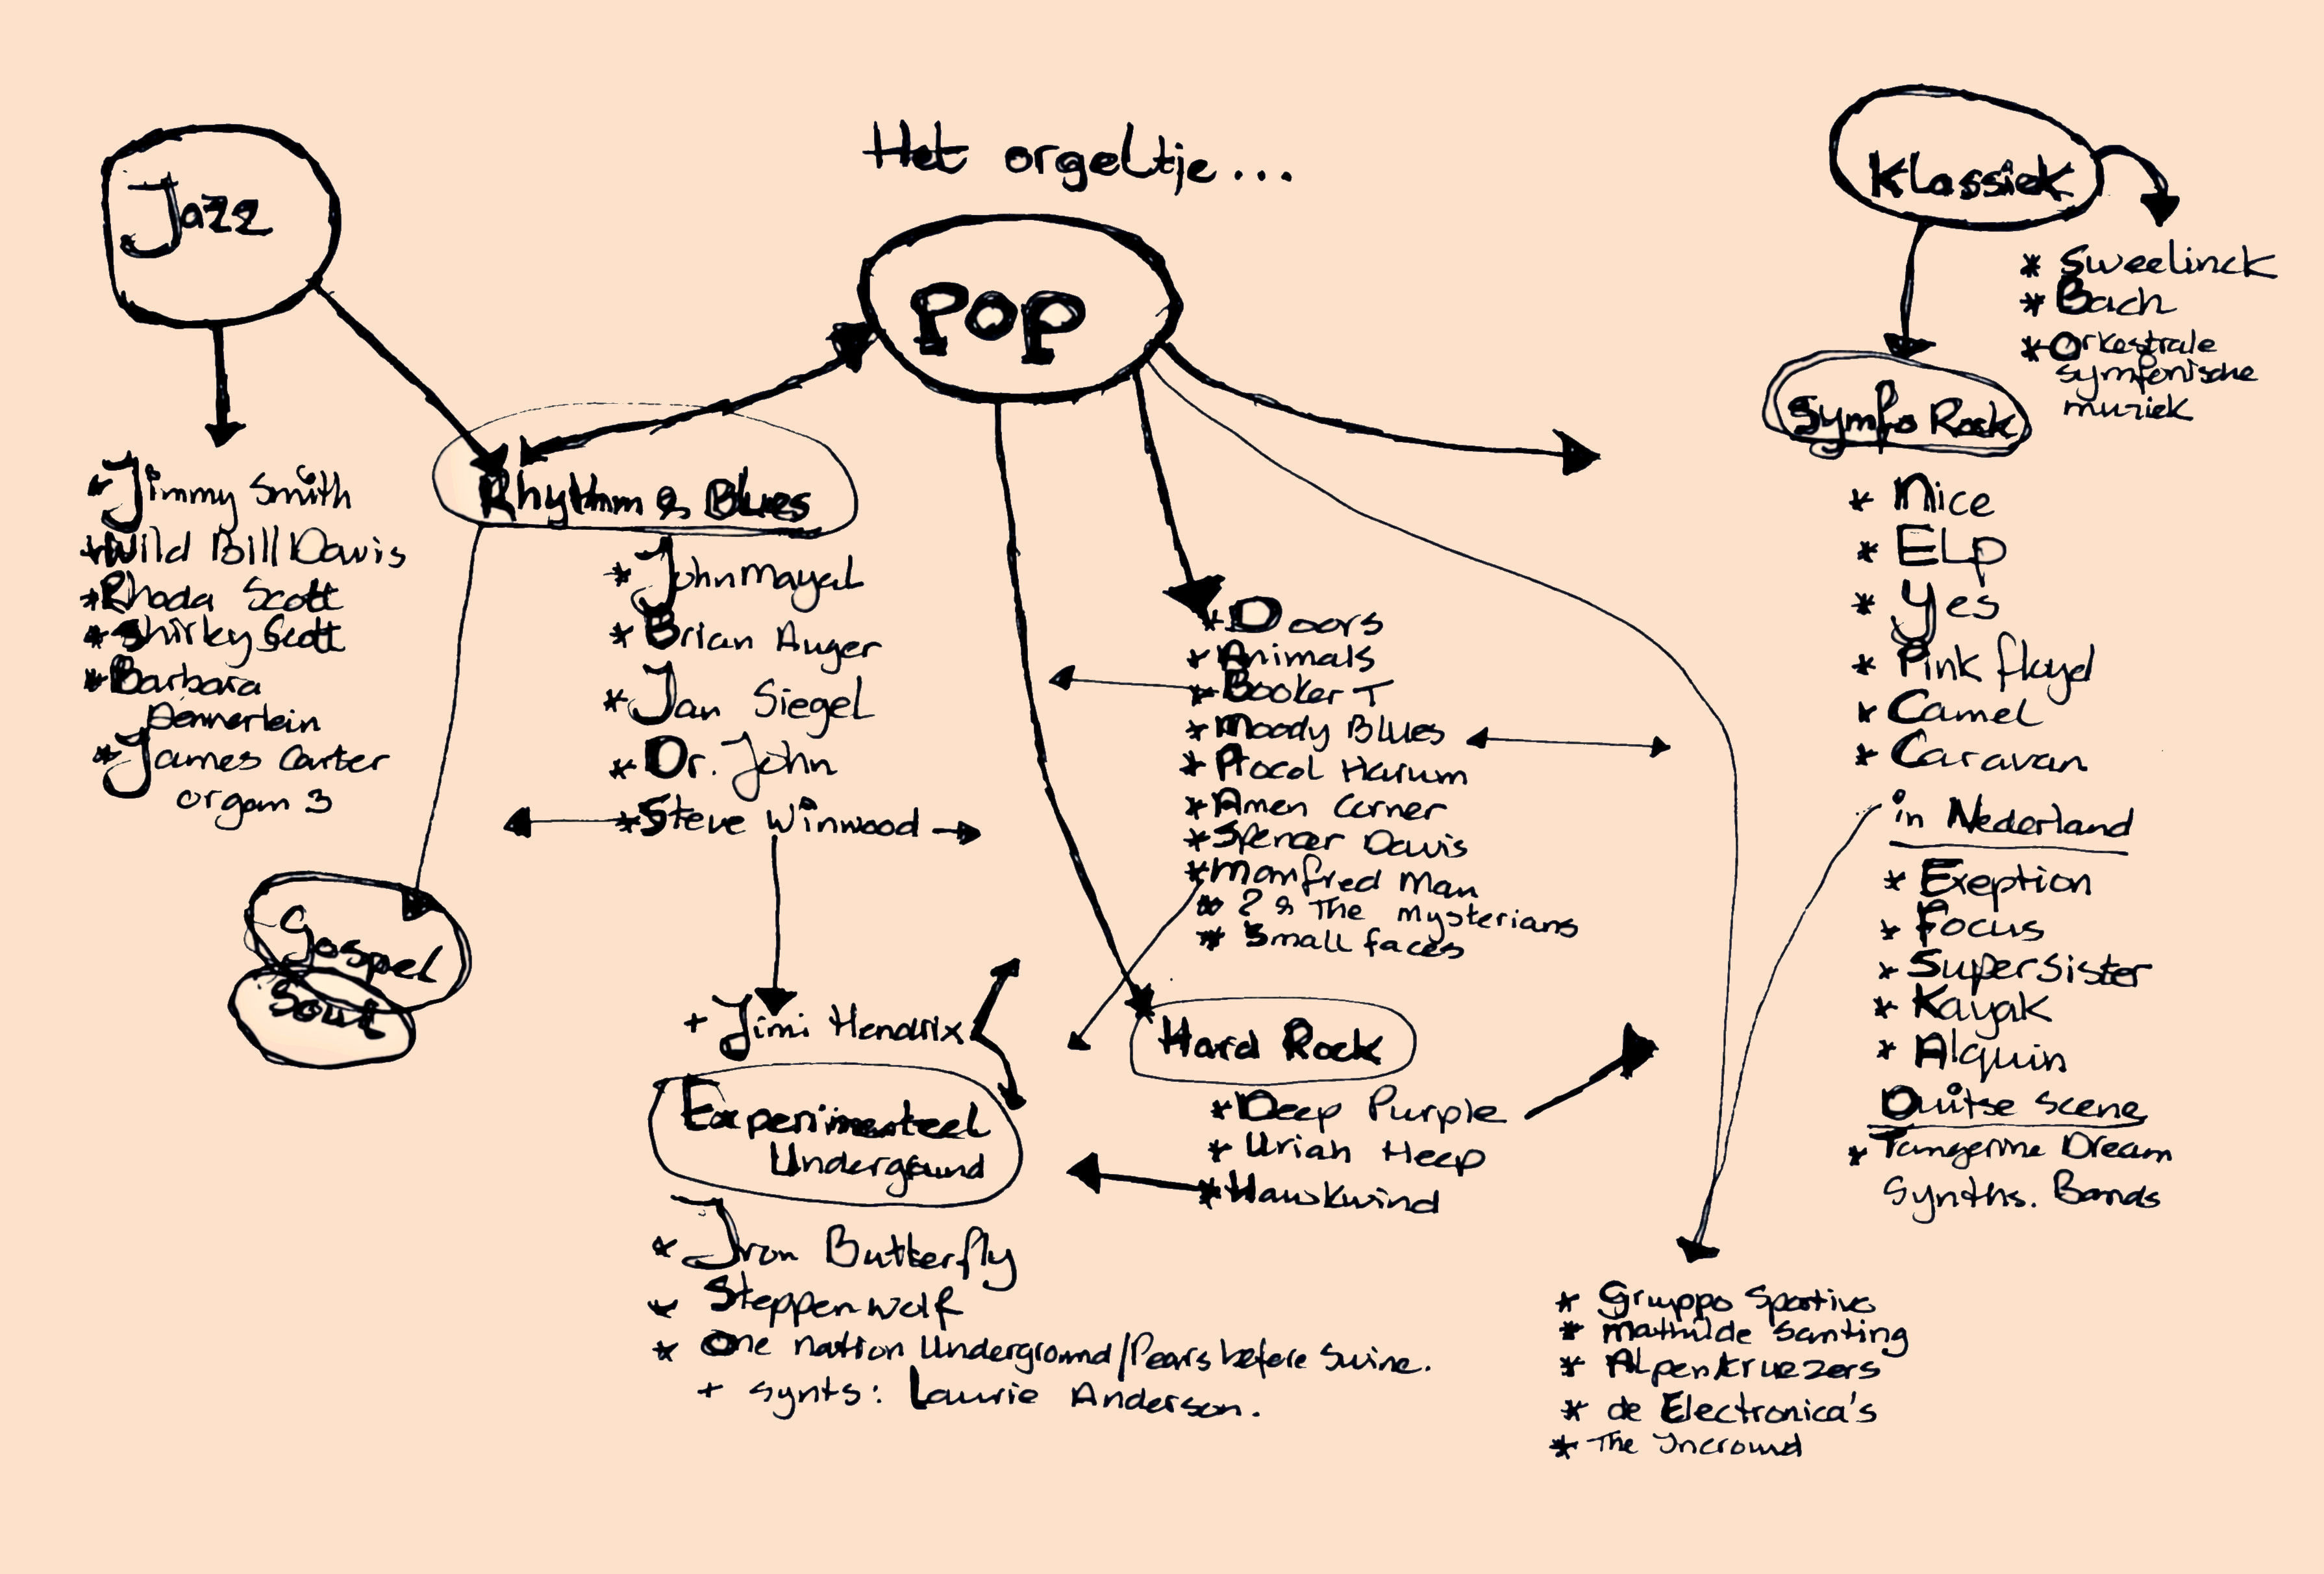 Het orgeltje...
Jazz
* Jimmy Smith
* Wild Bill Davis
* Rhoda Scott
* Shirley Scott
* Barbara
Dennerlein
* James Carter
organ 3
POP
Rhythm & Blues
* John Mayal
* Brian Auger
* Jan Siegel
* Dr. John
* Steve Winwood
Gospel
Soul
+ Jimi Hendrix
Experimenteel
Underground
* Iron Butterfly
* Steppenwolf
* One nation Underground/Pears before Swine.
+ synts: Laurie Anderson.
* Doors
* Animals
* Booker T
* Moody Blues
* Procol Harum
* Amen Corner
* Spencer Davis
* Manfred Man
* ? & The Mysterians
* Small faces
Hard Rock
* Deep Purple
* Uriah Heep
* Hawkwind
Klassiek
* Sweelinck
* Bach
* Orkestrale
symfonische
muziek
Symfo Rock
* Nice
* ELP
* Yes
* Pink floyd
* Camel
* Caravan
in Nederland
* Exeption
* Focus
* SuperSister
* Kayak
* Alquin
Duitse scene
* Tangerine Dream
Synths. Bands
* Gruppo Sportivo
* Mathilde Santing
* Alpenkruezers
* de Electronica's
* The Yncrowd